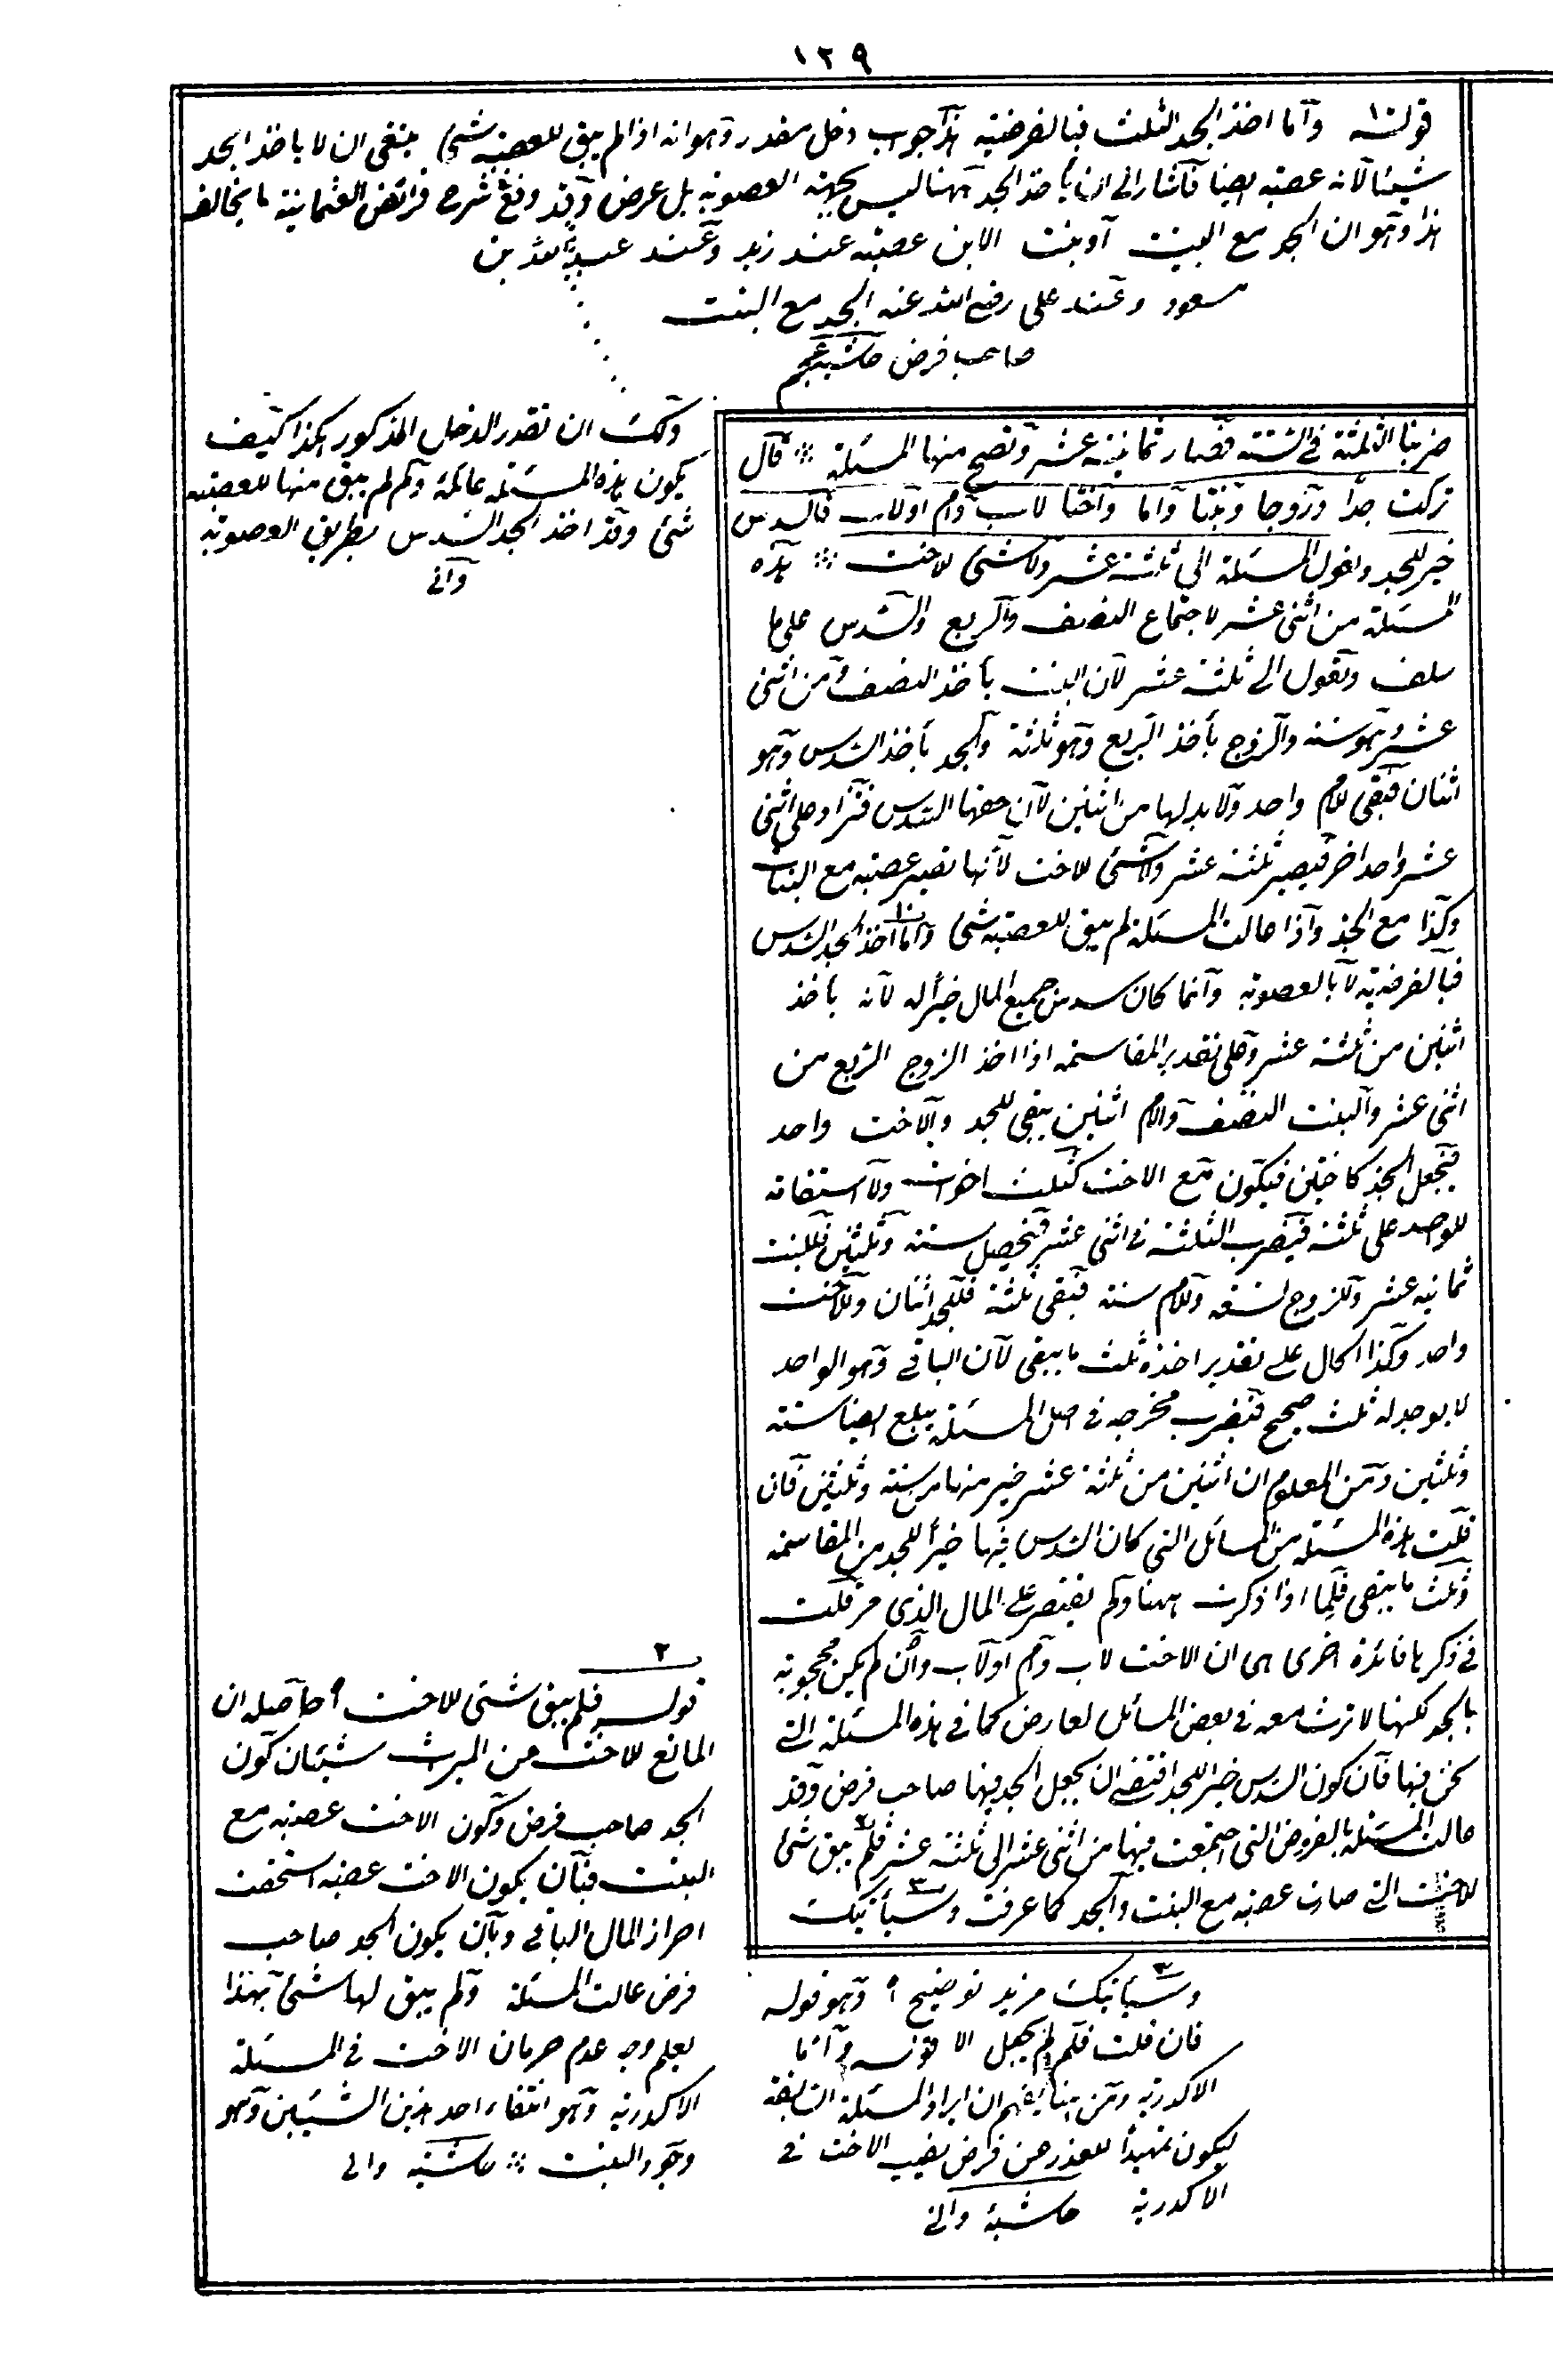 ١٢٩
قوله وأما اخذ الجد الثلث فبالفرضية هذا جواب دخل مقدر وهو انه اذا لم يبق للعصبة شئ ينبغى ان لا ياخذ الجد
شيئا لانه عصبة ايضا فاشار الى ان يأخذ الجد ههنا ليس بجهة العصوبة بل عرض وقد وقع شرح فرائض العثمانية ما يخالف
هذا وهو ان الجد مع البنت أو بنت الابن عصبة عند زيد وعند عبد الله بن
مسعود وعند على رضى الله عنه الجد مع البنت
صاحب فرض حاشية عجم
ولك ان تقدر الدخل المذكور هكذا كيف
يكون هذه المسئلة عائلة ولم لم يبق منها للعصبة
شئ وقد اخذ الجد السدس بطريق العصوبة
وانى
ضربنا الثلثة فى الستة فصار ثمانية عشر وتصح منها المسئلة قال
تركت جدا وزوجا وبنتا واما واختا لاب وام اولاب فالسدس
خير للجد وتعول المسئلة الى ثلثة عشر ولا شئ للاخت هذه
المسئلة من اثنى عشر لاجتماع النصف والربع والسدس على ما
سلف وتعول الى ثلثة عشر لان البنت يأخذ النصف من اثنى
عشر وهو ستة والزوج يأخذ الربع وهو ثلثة والجد يأخذ السدس وهو
اثنان فبقى للام واحد ولا بد لها من اثنين لان حقها السدس فتزاد على اثنى
عشر واحد اخر فيصير ثلثة عشر ولا شئ للاخت لأنها تصير عصبة مع البنات
وكذا مع الجد واذا عالت المسئلة لم يبق للعصبة شئ وأما اخذ الجد السدس
فبالفرضية لا بالعصوبة وانما كان سدس جميع المال خيرا له لانه يأخذ
اثنين من ثلثة عشر وعلى تقدير المقاسمة اذا اخذ الزوج الربع من
اثنى عشر والبنت النصف والام اثنين يبقى للجد والاخت واحد
فيجعل الجد كاختين فيكون مع الاخت كثلث اخوات ولا استقامة
للواحد على ثلثة فيضرب الثلثة فى اثنى عشر فيحصل ستة وثلثين فللبنت
ثمانية عشر وللزوج تسعة وللام ستة فبقى ثلثة فللجد اثنان وللاخت
واحد وكذا الحال على تقدير اخذه ثلث ما يبقى لان الباقى وهو الواحد
لا يوجد له ثلث صحيح فيضرب مخرجه فى اصل المسئلة يبلغ ايضا ستة
وثلثين ومن المعلوم ان اثنين من ثلثة عشر خير منها من ستة وثلثين فان
قلت هذه المسئلة من المسائل التى كان السدس فيها خيرا للجد من المقاسمة
وثلث ما يبقى فلماذا ذكرت ههنا ولم يقتصر على المال الذى مر قلت
فى ذكرها فائدة اخرى هى ان الاخت لاب وام اولاب وان لم يكن محجوبة
بالجد لكنها لا ترث معه فى بعض المسائل لعارض كما فى هذه المسئلة التى
نحن فيها فان كون السدس خيرا للجد اقتضى ان يجعل الجد فيها صاحب فرض وقد
عالت المسئلة بالفروض التى اجتمعت فيها من اثنى عشر الى ثلثة عشر فلم يبق شئ
للاخت التى صارت عصبة مع البنت والجد كما عرفت وسيأتيك
٢
قوله فلم يبق شئ للاخت حاصله ان
المانع للاخت عن الميراث شيئان كون
الجد صاحب فرض وكون الاخت عصبة مع
البنت فبان يكون الاخت عصبة استحقت
احراز المال الباقى وبان يكون الجد صاحب
فرض عالت المسئلة ولم يبق لها شئ بهذا
يعلم وجه عدم حرمان الاخت فى المسئلة
الاكدرية وهو انتفاء احد هذين الشيئين وهو
وجود البنت حاشية وانى
٣
وسيأتيك مزيد توضيح وهو قوله
فان قلت فلم لم يجعل الا قوله وانما
الاكدرية ومن هنا يفهم ان ايراد المسئلة السابقة
ليكون تمهيدا للعذر عن فرض نصيب الاخت فى
الاكدرية حاشية وانى